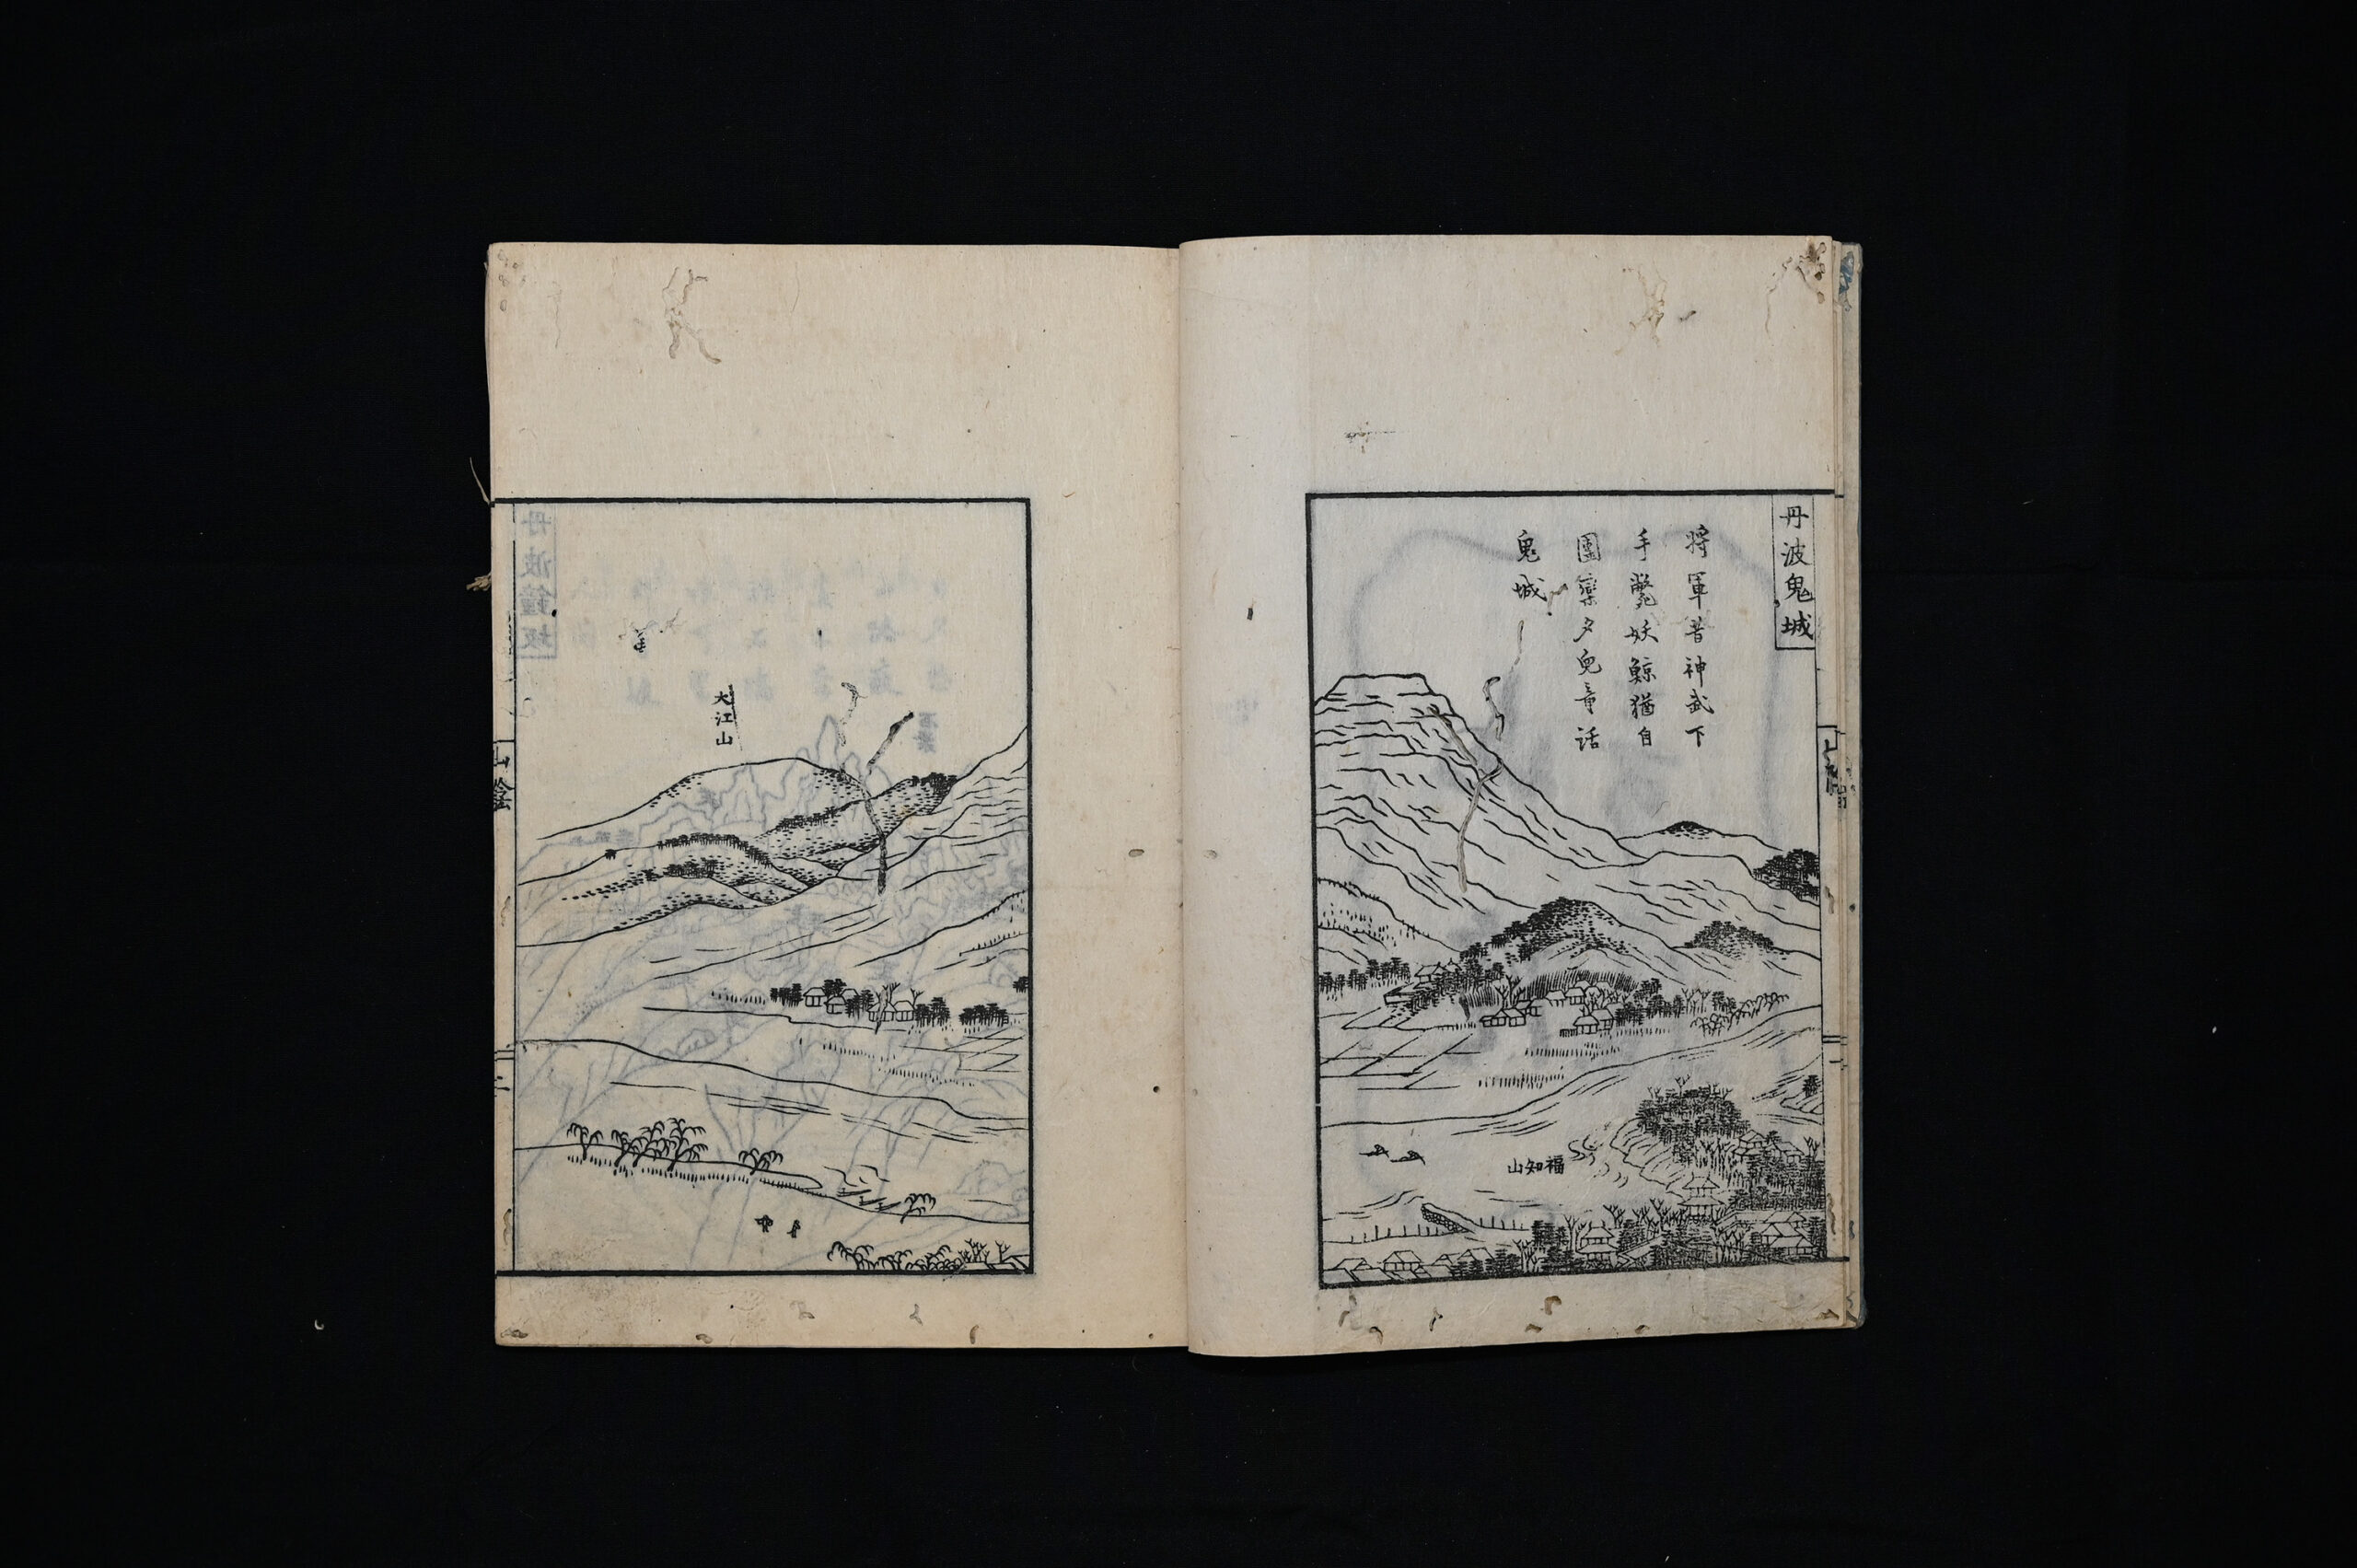 丹波鬼城
將軍昔神武下
手斃妖鯨猶自
團欒夕兒童話
鬼城
山知福
大江山
山陰